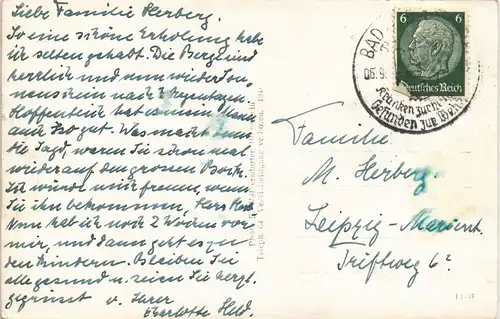 Liebe Familie Herberg.
So eine schöne Erholung habe
ich selten gehabt. Die Berge sind
herrlich und nun wieder Son-
nenschein nach 3 Regentagen.
Hoffentlich hat es mein Mann
auch so gut. Was macht denn
die Jagd, waren Sie schon mal
wieder auf den grossen Bock.
Ich würde mich freuen, wenn
Sie ihn bekommen, Herr
Nun hab ich noch 2 Wochen vor
mir, und dann geht es zu
den Kindern. Bleiben Sie
alle gesund u. seien Sie herzl.
gegrüsst v. Ihrer
Charlotte Held.
6 6
Deutsches Reich
BAD
06.9.
Kranken zur
Gesunden zur
Familie
M. Herberg.
Leipzig-Marienb.
Triftweg 6